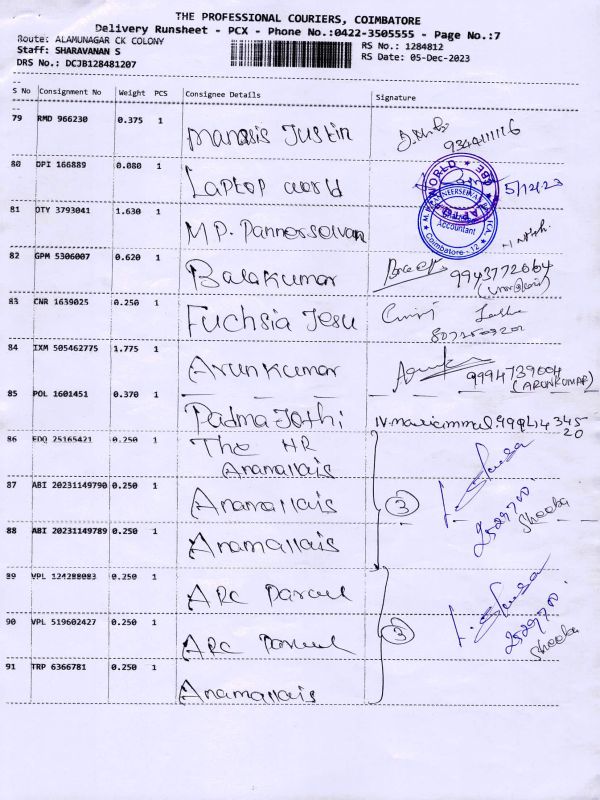 THE PROFESSIONAL COURIERS, COIMBATORE
Delivery Runsheet - PCX - Phone No.:0422-3505555 - Page No.:7
Route: ALAMUNAGAR CK COLONY
RS No.: 1284812
Staff: SHARAVANAN S
RS Date: 05-Dec-2023
DRS No.: DCJB128481207
S No Consignment No Weight PCS Consignee Details Signature
79 RMD 966230 0.375 1 Manasis Justin 9344111116
80 DPI 166889 0.080 1 Laptop world 5/12/23
81 OTY 3793041 1.630 1 M.P. Pannerselvam
Accountant
Coimbatore - 12
82 GPM 5306007 0.620 1 Balakumar 9943772064
83 CNR 1639025 0.250 1 Fuchsia Jesu
84 IXM 505462775 1.775 1 Arun Kumar 9994739004
(ARUNKUMAR)
85 POL 1601451 0.370 1 Padma Jothi
86 EDQ 25165421 0.250 1 The HR
Anamallais
87 ABI 20231149790 0.250 1 Anamallais 3
Sheeba
88 ABI 20231149789 0.250 1 Anamallais
89 VPL 124288083 0.250 1 ARC Parcel
90 VPL 519602427 0.250 1 ARC Parcel 3
Sheeba
91 TRP 6366781 0.250 1 Anamallais